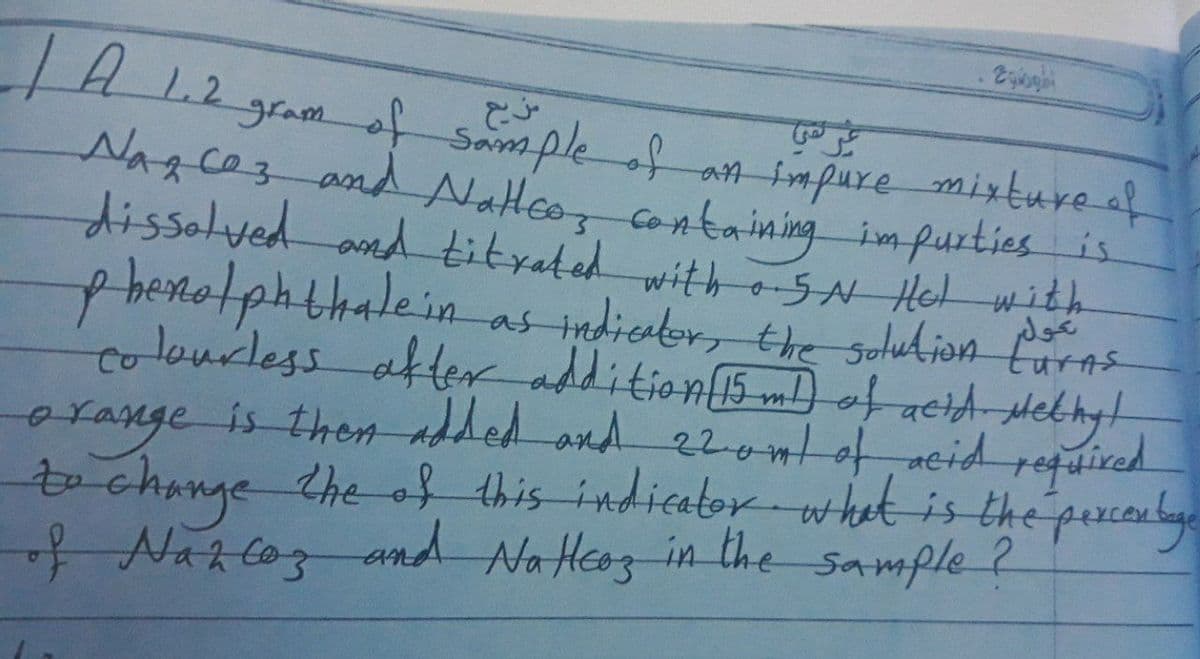 الموضوع .
1 A 1.2 gram of sample of an impure mixture of
مزج
Na2CO3 and NaHCO3 containing impurties is
dissolved and titrated with 0.5 N Hcl with
phenolphthalein as indicator, the solution turns
colourless after addition (15 ml) of acid. Methyl
orange is then added and 22.0 ml of acid required
to change the of this indicator. what is the percentage
of Na2CO3 and NaHCO3 in the sample ?